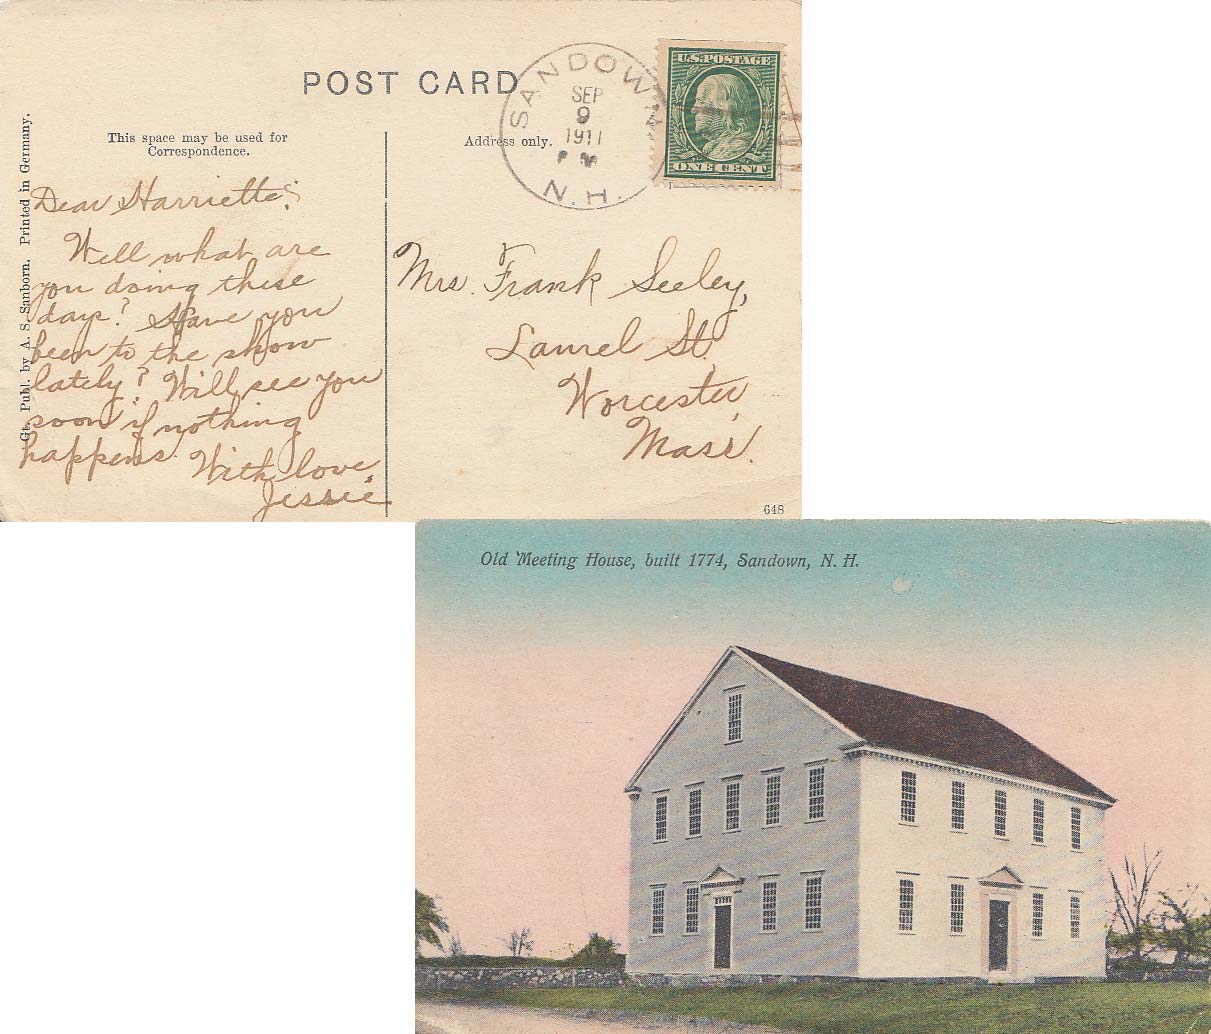 POST CARD
This space may be used for
Correspondence.
Address only.
SANDOWN
SEP
9
1911
P M
N.H.
U.S. POSTAGE
ONE CENT
Publ. by A. S. Sanborn. Printed in Germany.
Dear Harriette:
Well what are
you doing these
days? Have you
been to the show
lately? Will see you
soon if nothing
happens. With love,
Jessie
Mrs. Frank Seeley,
Laurel St.
Worcester,
Mass.
648
Old Meeting House, built 1774, Sandown, N. H.